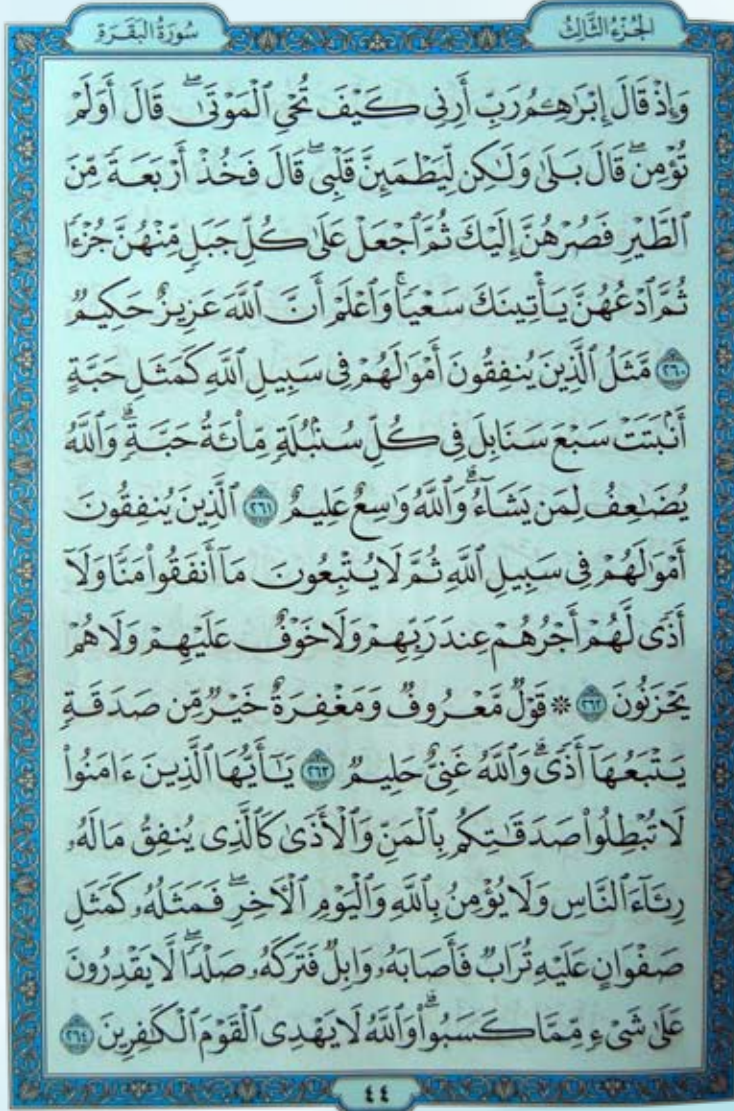 سُورَةُ البَقَرَةِ
الجُزْءُ الثَّالِثُ
وَإِذْ قَالَ إِبْرَٰهِـۧمُ رَبِّ أَرِنِى كَيْفَ تُحْىِ ٱلْمَوْتَىٰ ۖ قَالَ أَوَلَمْ
تُؤْمِن ۖ قَالَ بَلَىٰ وَلَـٰكِن لِّيَطْمَئِنَّ قَلْبِى ۖ قَالَ فَخُذْ أَرْبَعَةً مِّنَ
ٱلطَّيْرِ فَصُرْهُنَّ إِلَيْكَ ثُمَّ ٱجْعَلْ عَلَىٰ كُلِّ جَبَلٍ مِّنْهُنَّ جُزْءًا
ثُمَّ ٱدْعُهُنَّ يَأْتِينَكَ سَعْيًا ۚ وَٱعْلَمْ أَنَّ ٱللَّهَ عَزِيزٌ حَكِيمٌ
٢٦٠ مَّثَلُ ٱلَّذِينَ يُنفِقُونَ أَمْوَٰلَهُمْ فِى سَبِيلِ ٱللَّهِ كَمَثَلِ حَبَّةٍ
أَنۢبَتَتْ سَبْعَ سَنَابِلَ فِى كُلِّ سُنۢبُلَةٍ مِّا۟ئَةُ حَبَّةٍ ۗ وَٱللَّهُ
يُضَـٰعِفُ لِمَن يَشَآءُ ۗ وَٱللَّهُ وَٰسِعٌ عَلِيمٌ ٢٦١ ٱلَّذِينَ يُنفِقُونَ
أَمْوَٰلَهُمْ فِى سَبِيلِ ٱللَّهِ ثُمَّ لَا يُتْبِعُونَ مَآ أَنفَقُوا۟ مَنًّا وَلَآ
أَذًى لَّهُمْ أَجْرُهُمْ عِندَ رَبِّهِمْ وَلَا خَوْفٌ عَلَيْهِمْ وَلَا هُمْ
يَحْزَنُونَ ٢٦٢ ۞ قَوْلٌ مَّعْرُوفٌ وَمَغْفِرَةٌ خَيْرٌ مِّن صَدَقَةٍ
يَتْبَعُهَآ أَذًى ۗ وَٱللَّهُ غَنِىٌّ حَلِيمٌ ٢٦٣ يَـٰٓأَيُّهَا ٱلَّذِينَ ءَامَنُوا۟
لَا تُبْطِلُوا۟ صَدَقَـٰتِكُم بِٱلْمَنِّ وَٱلْأَذَىٰ كَٱلَّذِى يُنفِقُ مَالَهُۥ
رِئَآءَ ٱلنَّاسِ وَلَا يُؤْمِنُ بِٱللَّهِ وَٱلْيَوْمِ ٱلْـَٔاخِرِ ۖ فَمَثَلُهُۥ كَمَثَلِ
صَفْوَانٍ عَلَيْهِ تُرَابٌ فَأَصَابَهُۥ وَابِلٌ فَتَرَكَهُۥ صَلْدًا ۖ لَّا يَقْدِرُونَ
عَلَىٰ شَىْءٍ مِّمَّا كَسَبُوا۟ ۗ وَٱللَّهُ لَا يَهْدِى ٱلْقَوْمَ ٱلْكَـٰفِرِينَ ٢٦٤
٤٤